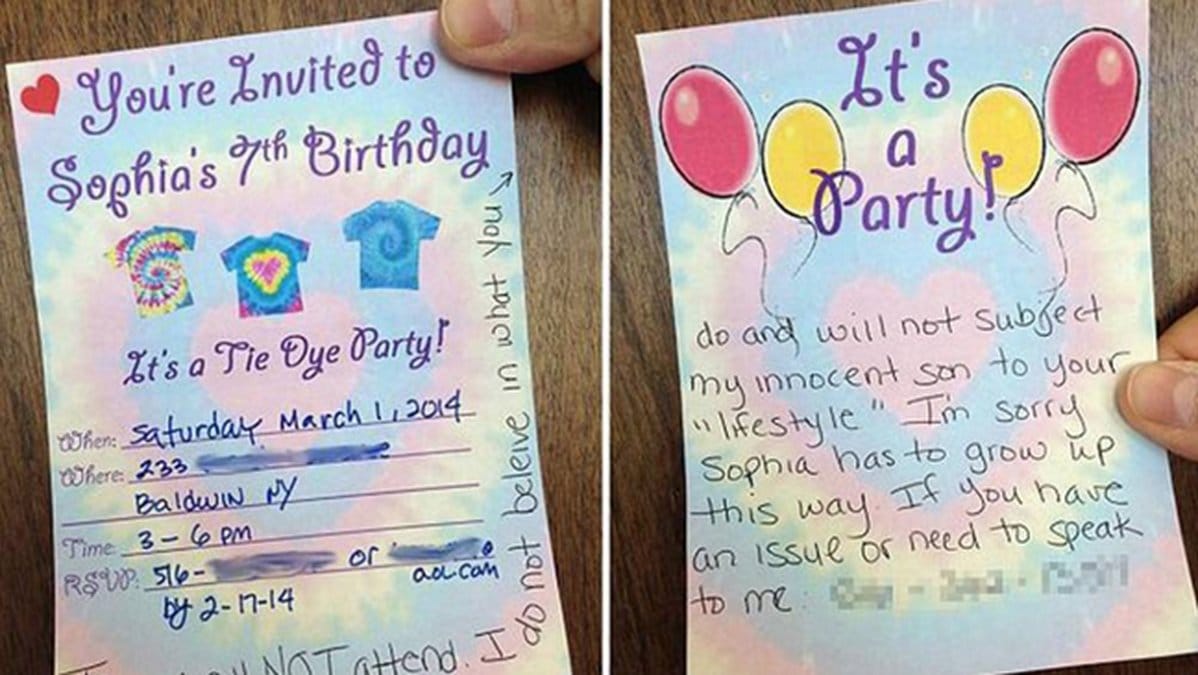 You're Invited to
Sophia's 7th Birthday
It's a Tie Dye Party!
When: Saturday March 1, 2014
Where: 233
Baldwin NY
Time: 3-6 pm
RSVP: 516- or
aol.com
by 2-17-14
NOT attend. I
do not beleive in what you →
It's
a
Party!
do and will not subject
my innocent son to your
"lifestyle" I'm sorry
Sophia has to grow up
this way. If you have
an issue or need to speak
to me: